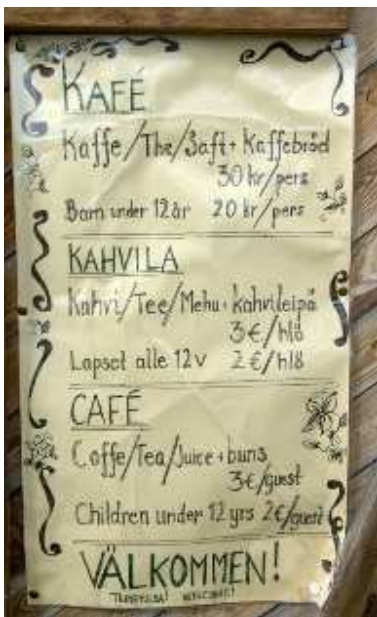 KAFÉ
Kaffe/The/Saft+Kaffebröd
30 kr/pers
Barn under 12 år 20 kr/pers
KAHVILA
Kahvi/Tee/Mehu+kahvileipä
3€/hlö
Lapset alle 12v 2€/hlö
CAFÉ
Coffe/Tea/Juice+buns
3€/guest
Children under 12 yrs 2€/guest
VÄLKOMMEN!
TERVETULOA! WELCOME!